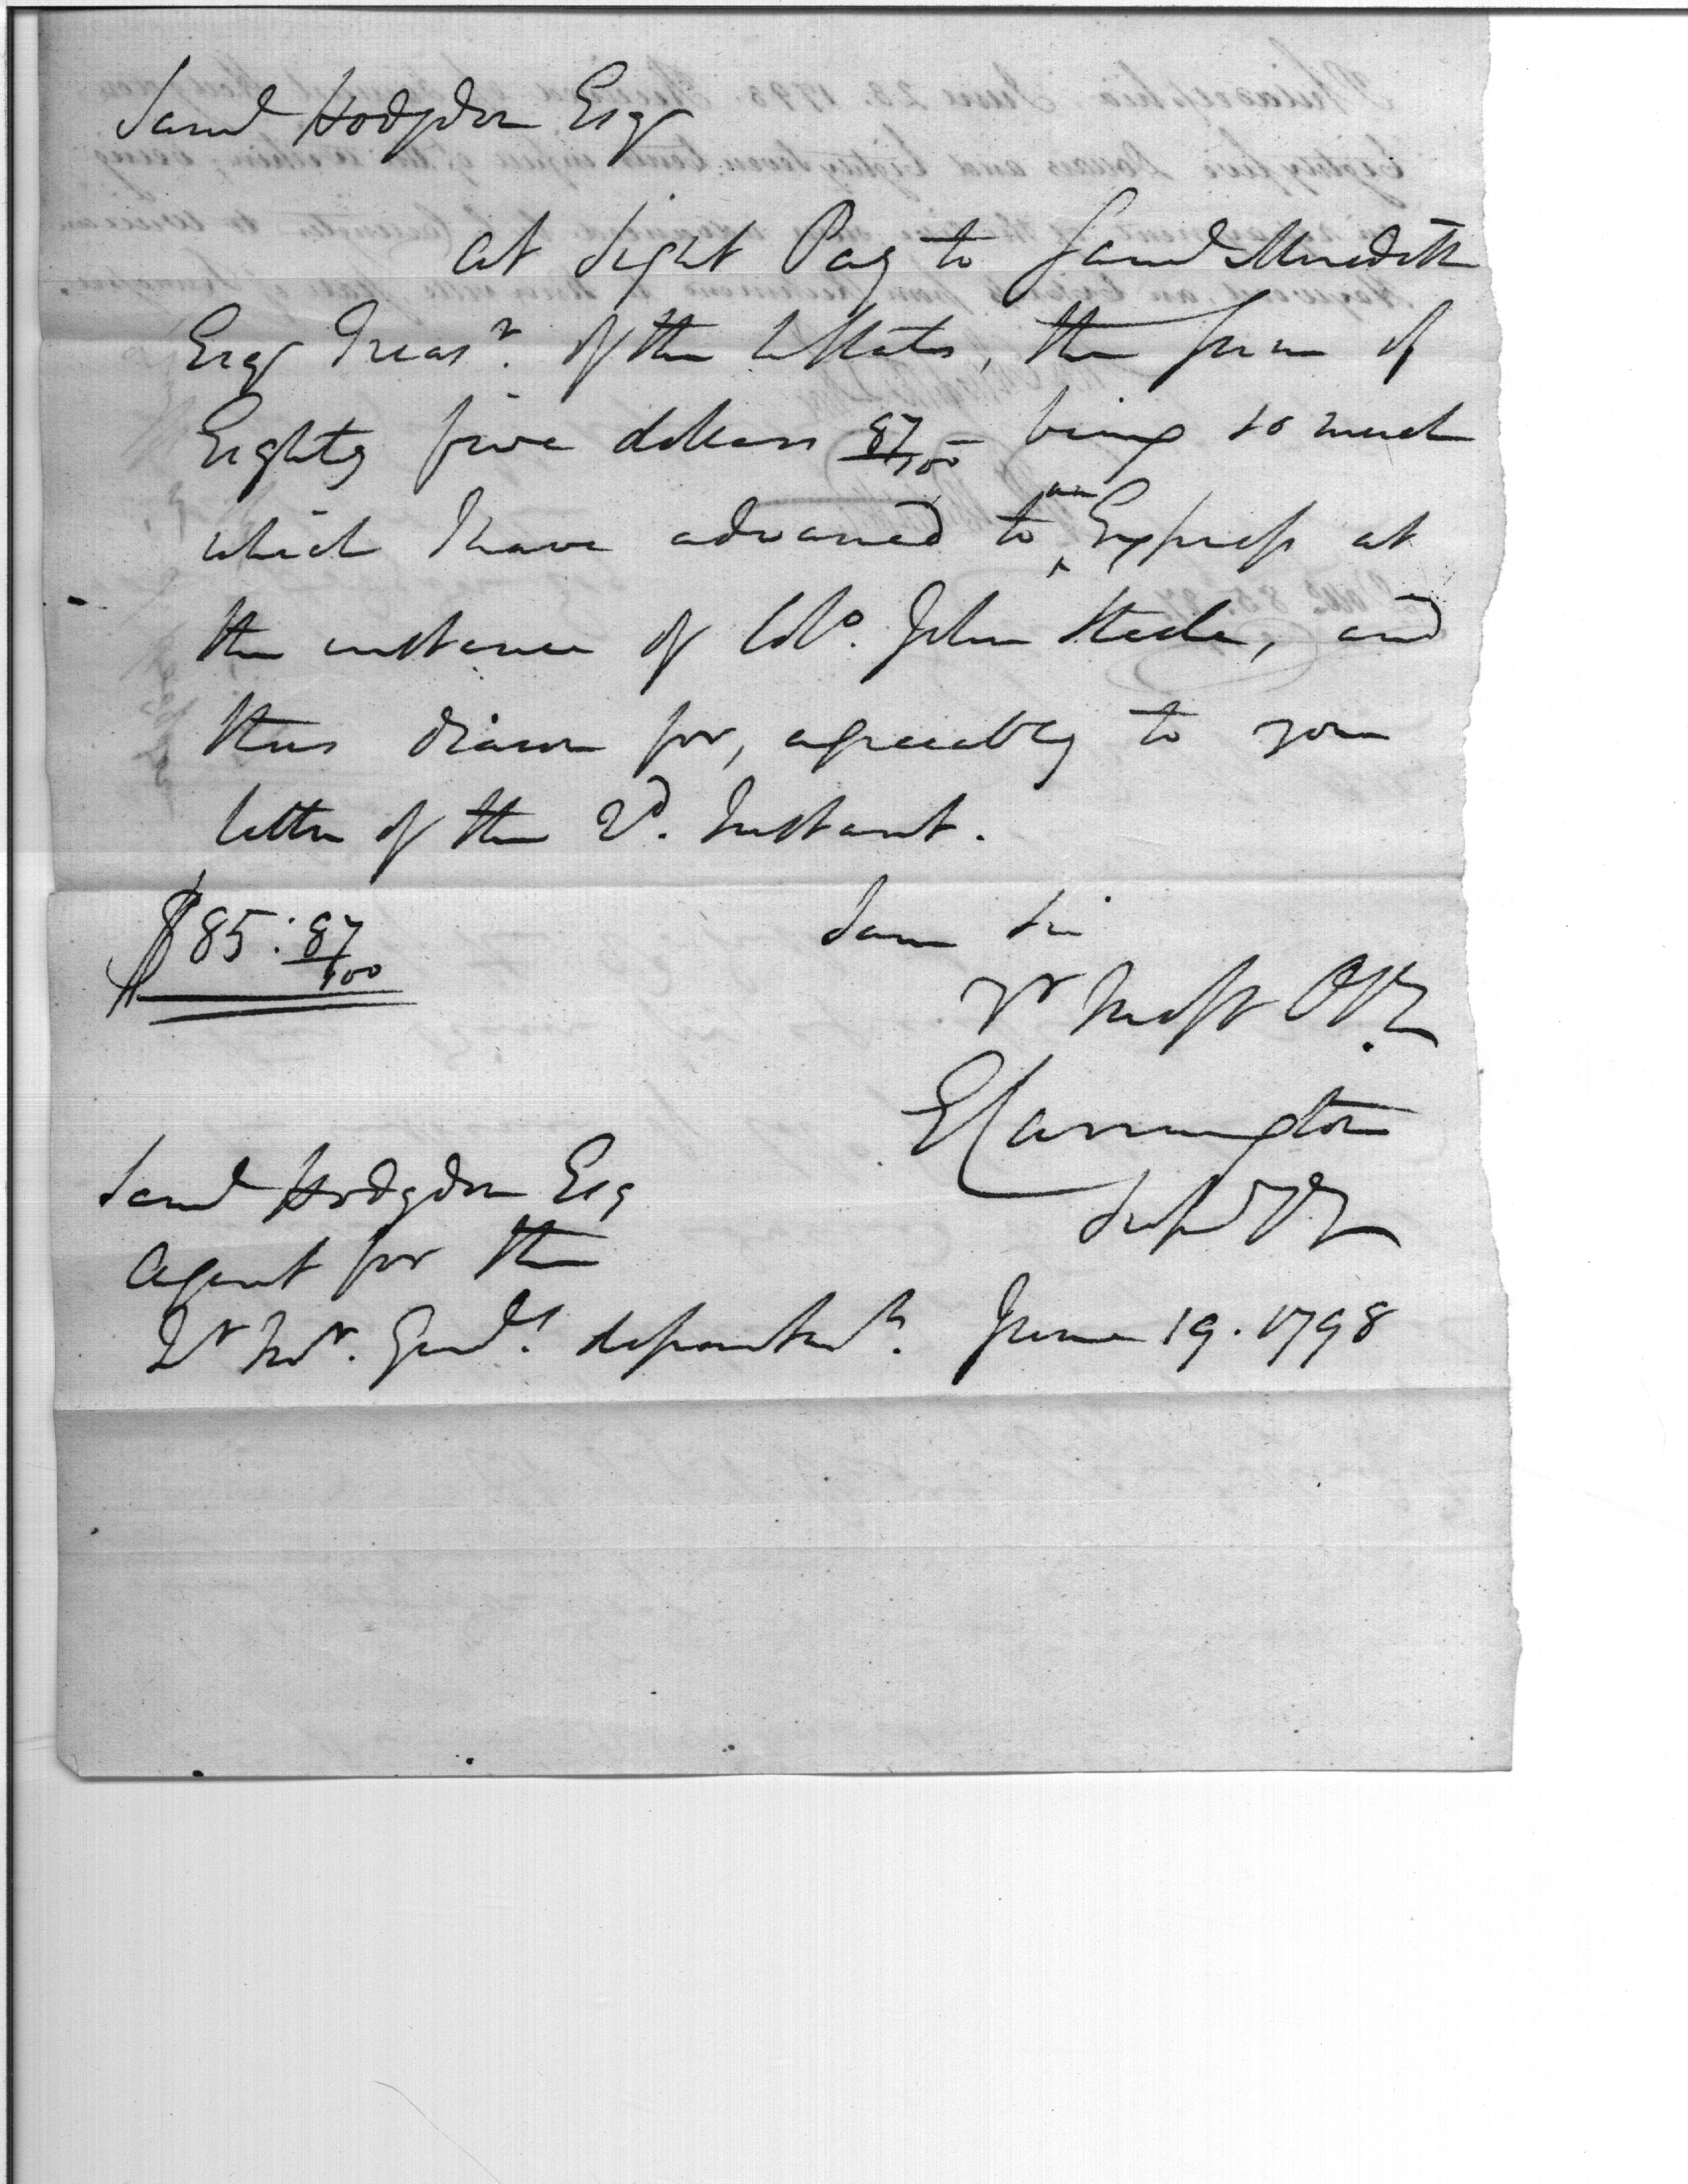 Saml Hodgdon Esqr
At sight Pay to Saml Meredith
Esqr Treasr. of the UStates, the sum of
Eighty five dollars 87/100 – being so much
which I have advanced to an Express at
the instance of Colo. John Steele, and
thus drawn for, agreeably to your
letter of the 2d. Instant.
$85:87/100
I am Sir
Yr Most Ob
ECarrington
Saml Hodgdon Esq
Agent for the
Qr Mr. Genls. departmt. June 19. 1798